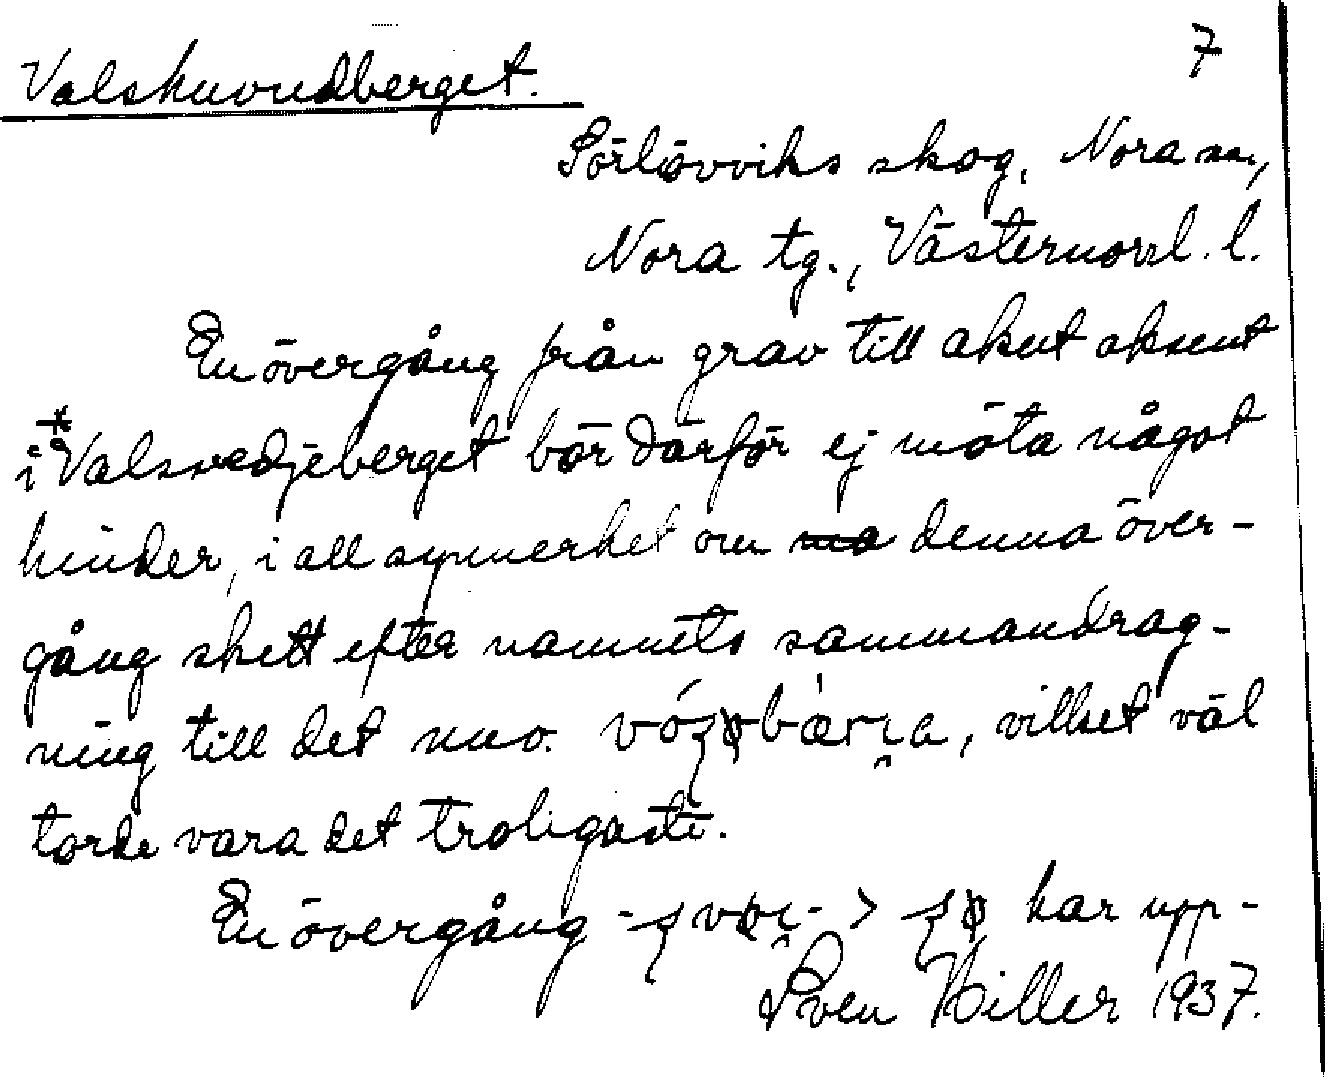 7
Valskuvudberget.
Sörlövviks skog, Nora sn,
Nora tg., Västernorrl. l.
En övergång från grav till akut aksent
i *Valsvedjeberget bör därför ej möta något
hinder, i all synnerhet om denna över-
gång skett efter namnets sammandrag-
ning till det nuv. vilket väl
torde vara det troligaste.
En övergång > har upp-
Sven Hiller 1937.